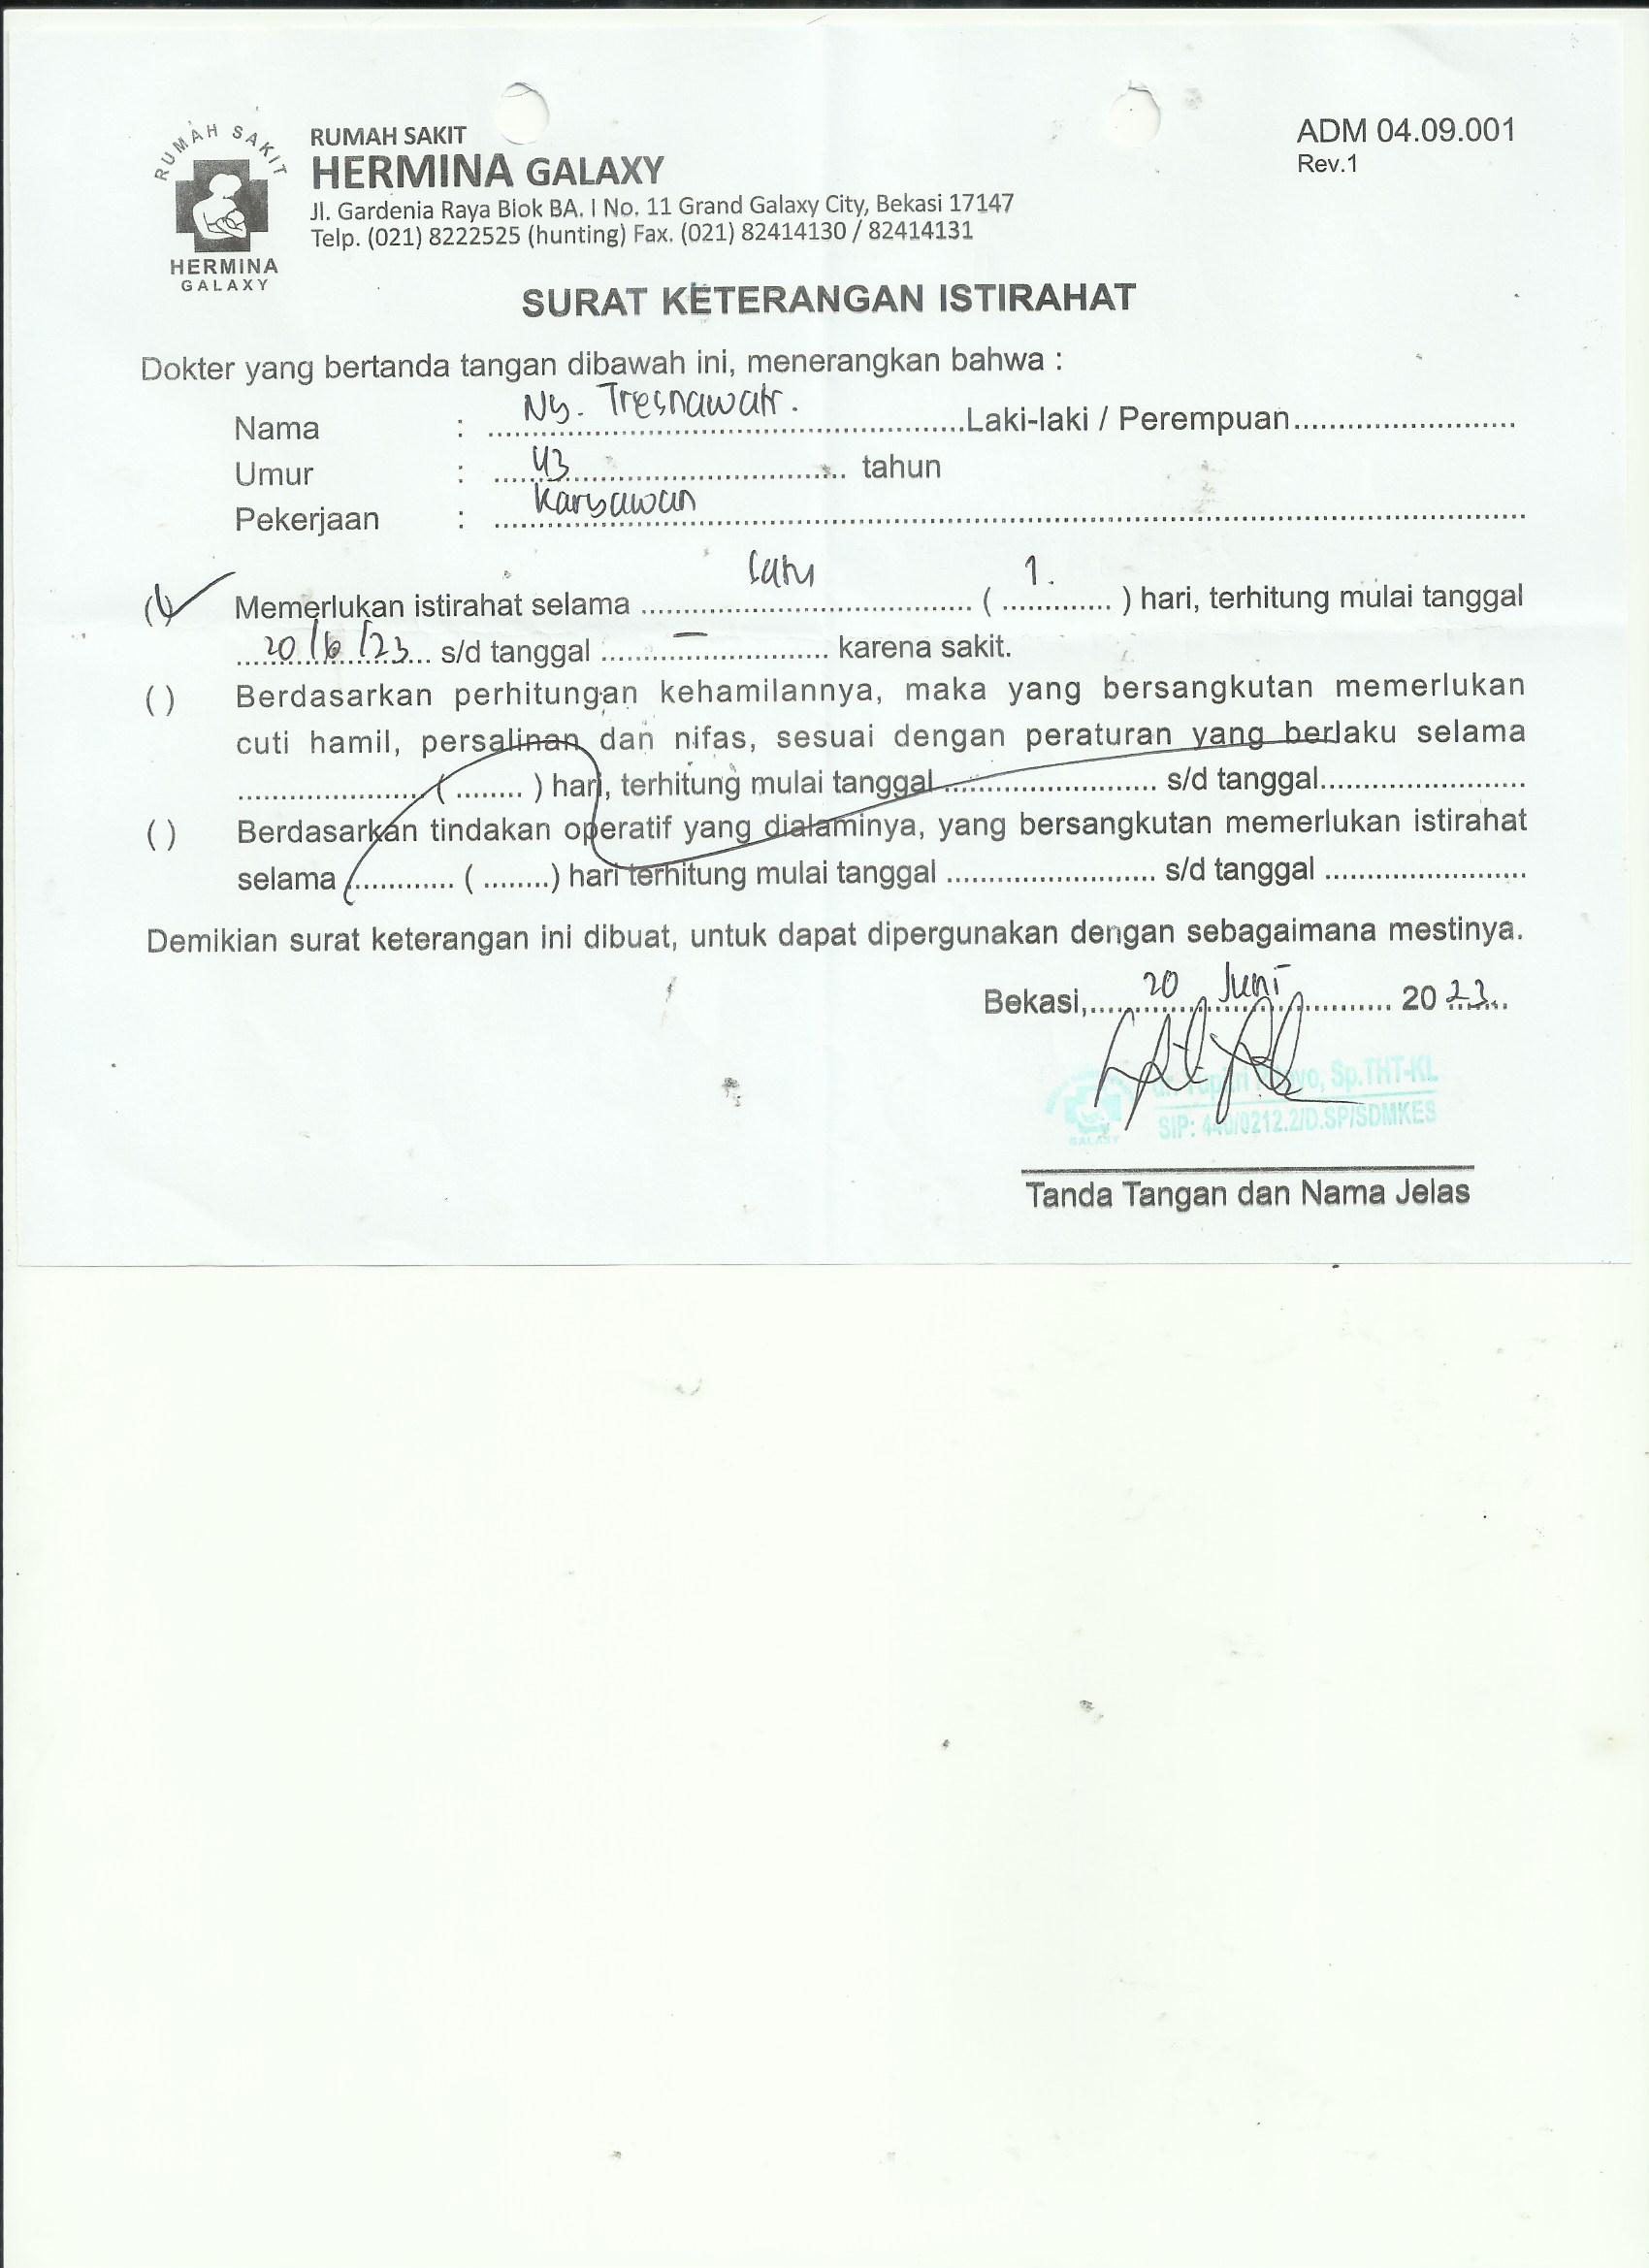 RUMAH SAKIT
HERMINA
GALAXY
RUMAH SAKIT
HERMINA GALAXY
Jl. Gardenia Raya Blok BA. I No. 11 Grand Galaxy City, Bekasi 17147
Telp. (021) 8222525 (hunting) Fax. (021) 82414130 / 82414131
ADM 04.09.001
Rev.1
SURAT KETERANGAN ISTIRAHAT
Dokter yang bertanda tangan dibawah ini, menerangkan bahwa :
Nama : Ny. Tresnawati. Laki-laki / Perempuan
Umur : 43 tahun
Pekerjaan : Karyawan
(✓) Memerlukan istirahat selama satu ( 1. ) hari, terhitung mulai tanggal
20/6/23 s/d tanggal — karena sakit.
( ) Berdasarkan perhitungan kehamilannya, maka yang bersangkutan memerlukan
cuti hamil, persalinan dan nifas, sesuai dengan peraturan yang berlaku selama
..................... ( ........ ) hari, terhitung mulai tanggal ........................ s/d tanggal........................
( ) Berdasarkan tindakan operatif yang dialaminya, yang bersangkutan memerlukan istirahat
selama ............. ( ........) hari terhitung mulai tanggal ........................ s/d tanggal ........................
Demikian surat keterangan ini dibuat, untuk dapat dipergunakan dengan sebagaimana mestinya.
Bekasi, 20 Juni 2023
Sp.THT-KL
SIP: 440/0212.2/D.SP/SDMKES
GALAXY
Tanda Tangan dan Nama Jelas